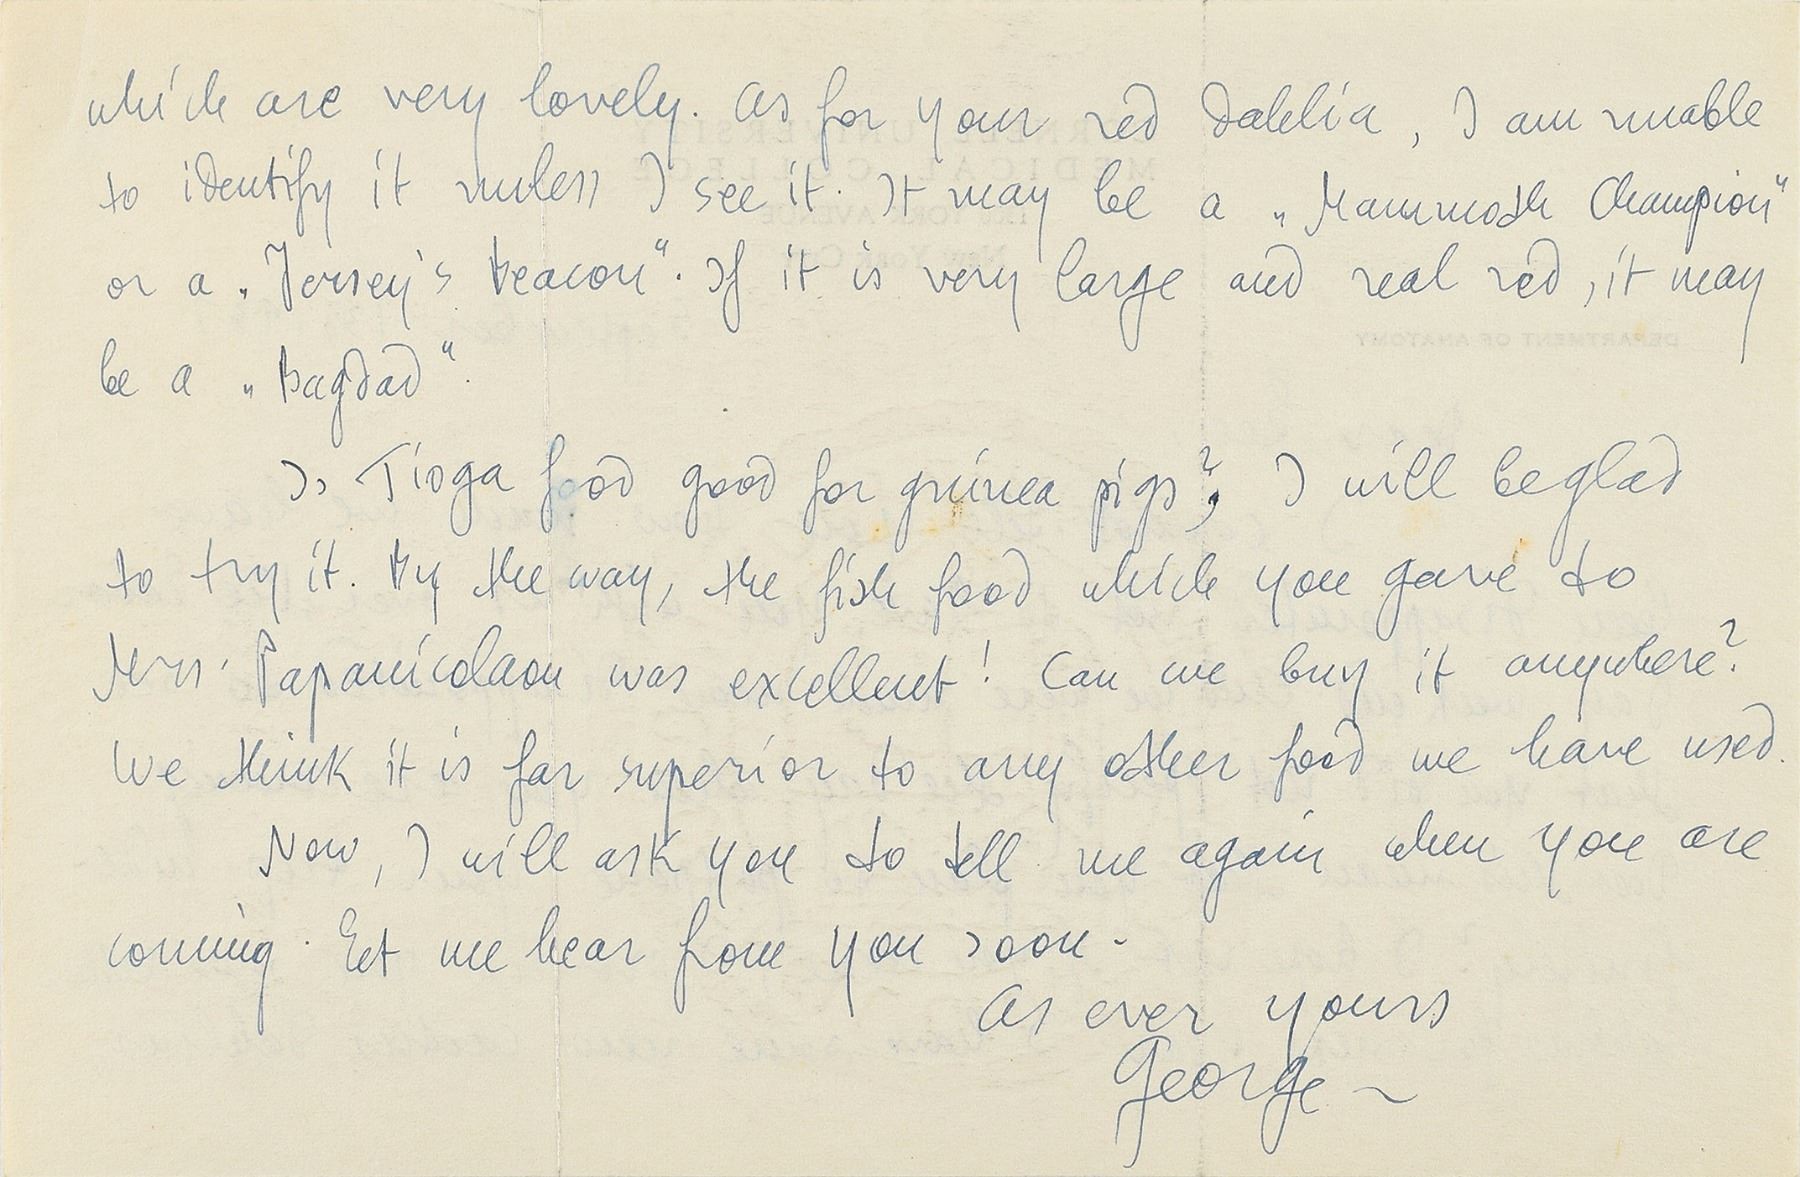 which are very lovely. As for your red Dahlia, I am unable
to identify it unless I see it. It may be a „Mammoth Champion“
or a „Jersey's Beacon“. If it is very large and real red, it may
be a „Bagdad“.
Is Tioga food good for guinea pigs? I will be glad
to try it. By the way, the fish food which you gave to
Mrs. Papanicolaou was excellent! Can we buy it anywhere?
We think it is far superior to any other food we have used.
Now, I will ask you to tell me again when you are
coming. Let me hear from you soon.
As ever yours
George
CORNELL UNIVERSITY
MEDICAL COLLEGE
YORK AVENUE
NEW YORK CITY
DEPARTMENT OF ANATOMY